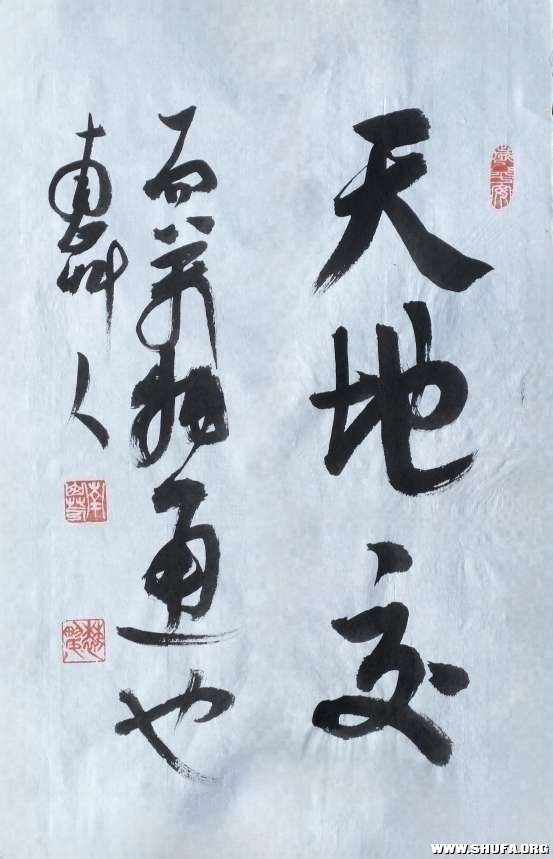 天地交
而萬物通也
人
WWW.SHUFA.ORG